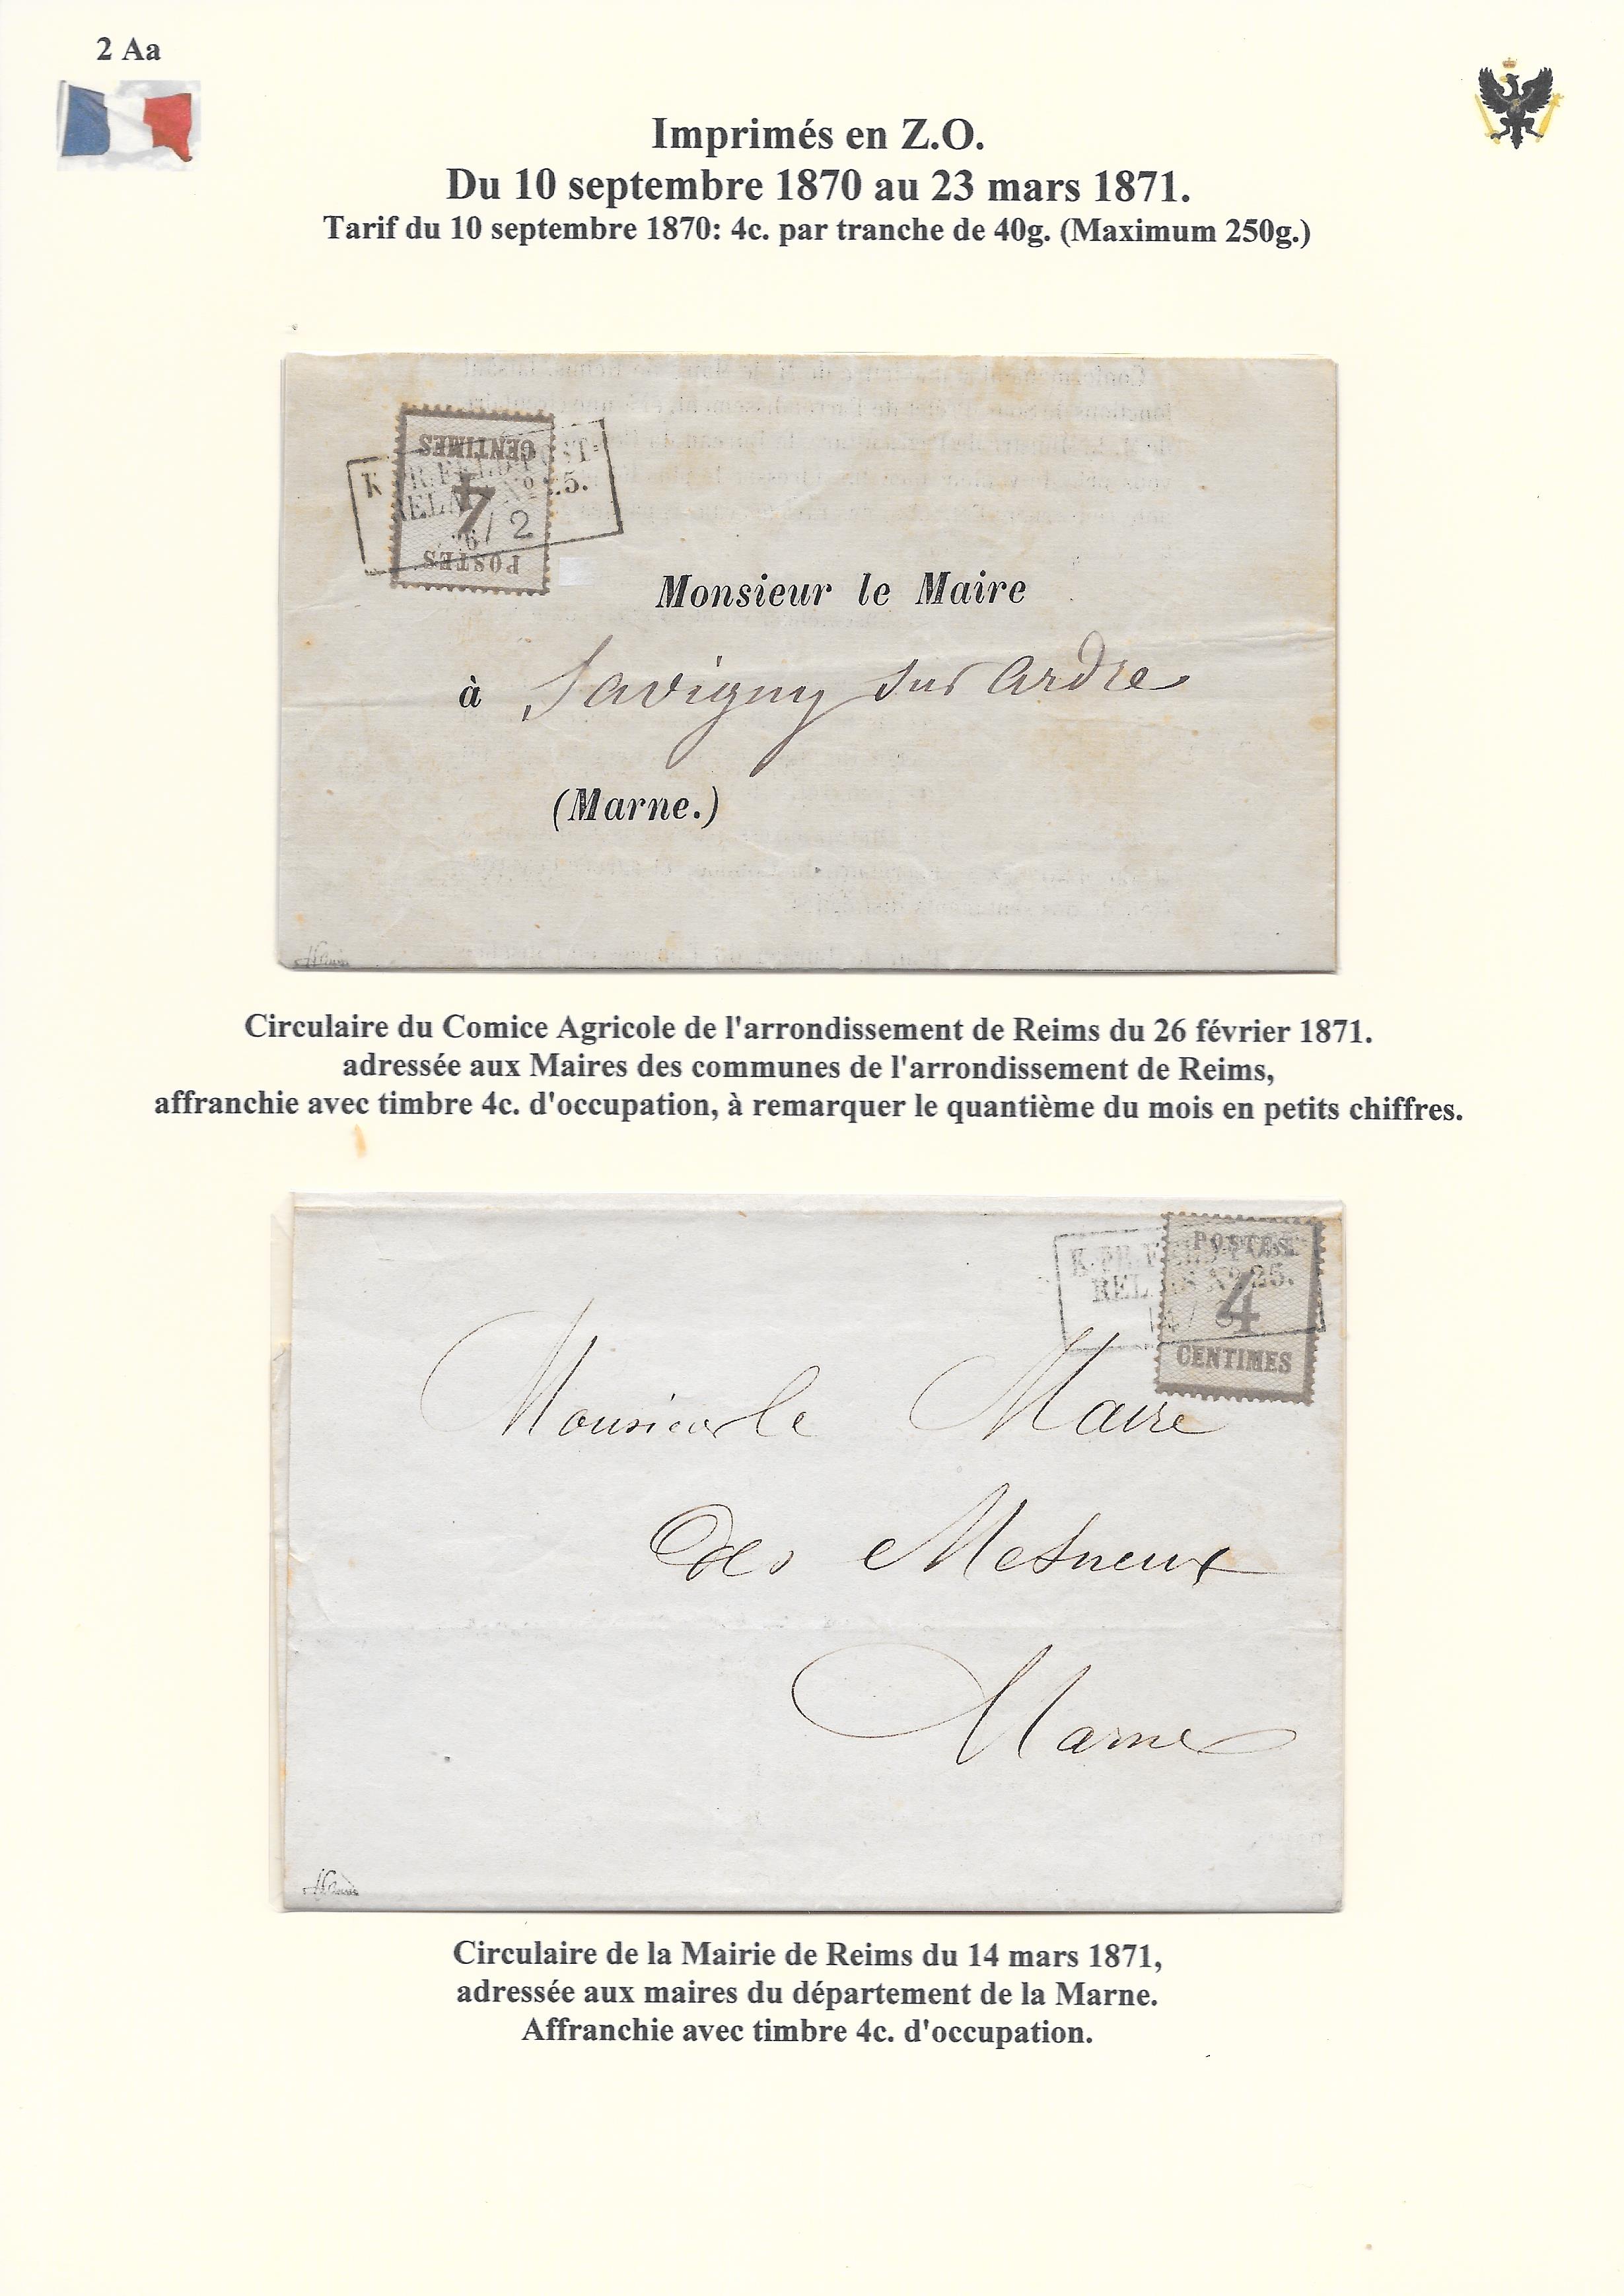 2 Aa
Imprimés en Z.O.
Du 10 septembre 1870 au 23 mars 1871.
Tarif du 10 septembre 1870: 4c. par tranche de 40g. (Maximum 250g.)
POSTES
4
CENTIMES
K. PR. FELD-POST-
RELAIS No 25.
26/2
Monsieur le Maire
à Savigny sur Ardre
(Marne.)
Circulaire du Comice Agricole de l'arrondissement de Reims du 26 février 1871.
adressée aux Maires des communes de l'arrondissement de Reims,
affranchie avec timbre 4c. d'occupation, à remarquer le quantième du mois en petits chiffres.
POSTES
4
CENTIMES
K. PR. FELD-POST
RELAIS No 25.
Monsieur le Maire
des Mesneux
Marne
Circulaire de la Mairie de Reims du 14 mars 1871,
adressée aux maires du département de la Marne.
Affranchie avec timbre 4c. d'occupation.